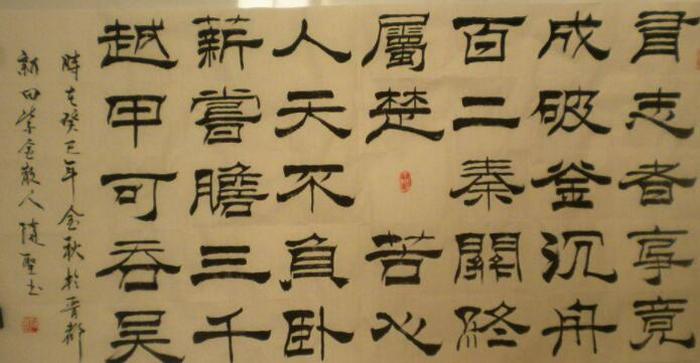 有志者事竟
成破釜沉舟
百二秦關終
屬楚苦心
人天不負卧
薪嘗膽三千
越甲可吞吴
時在癸巳年金秋於晋都
新田紫金散人聖书